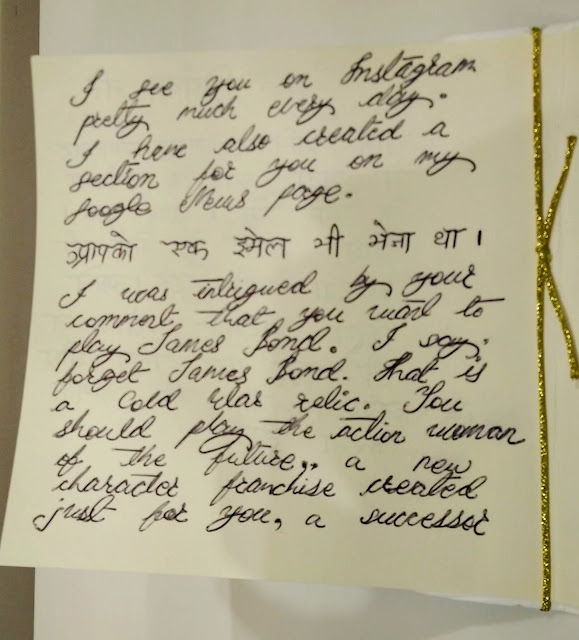 I see you on Instagram
pretty much every day.
I have also created a
section for you on my
google News page.
आपको एक इमेल भी भेजा था।
I was intrigued by your
comment that you want to
play James Bond. I say,
forget James Bond. That is
a Cold War relic. You
should play the action woman
of the future.. a new
character franchise created
just for you, a successor